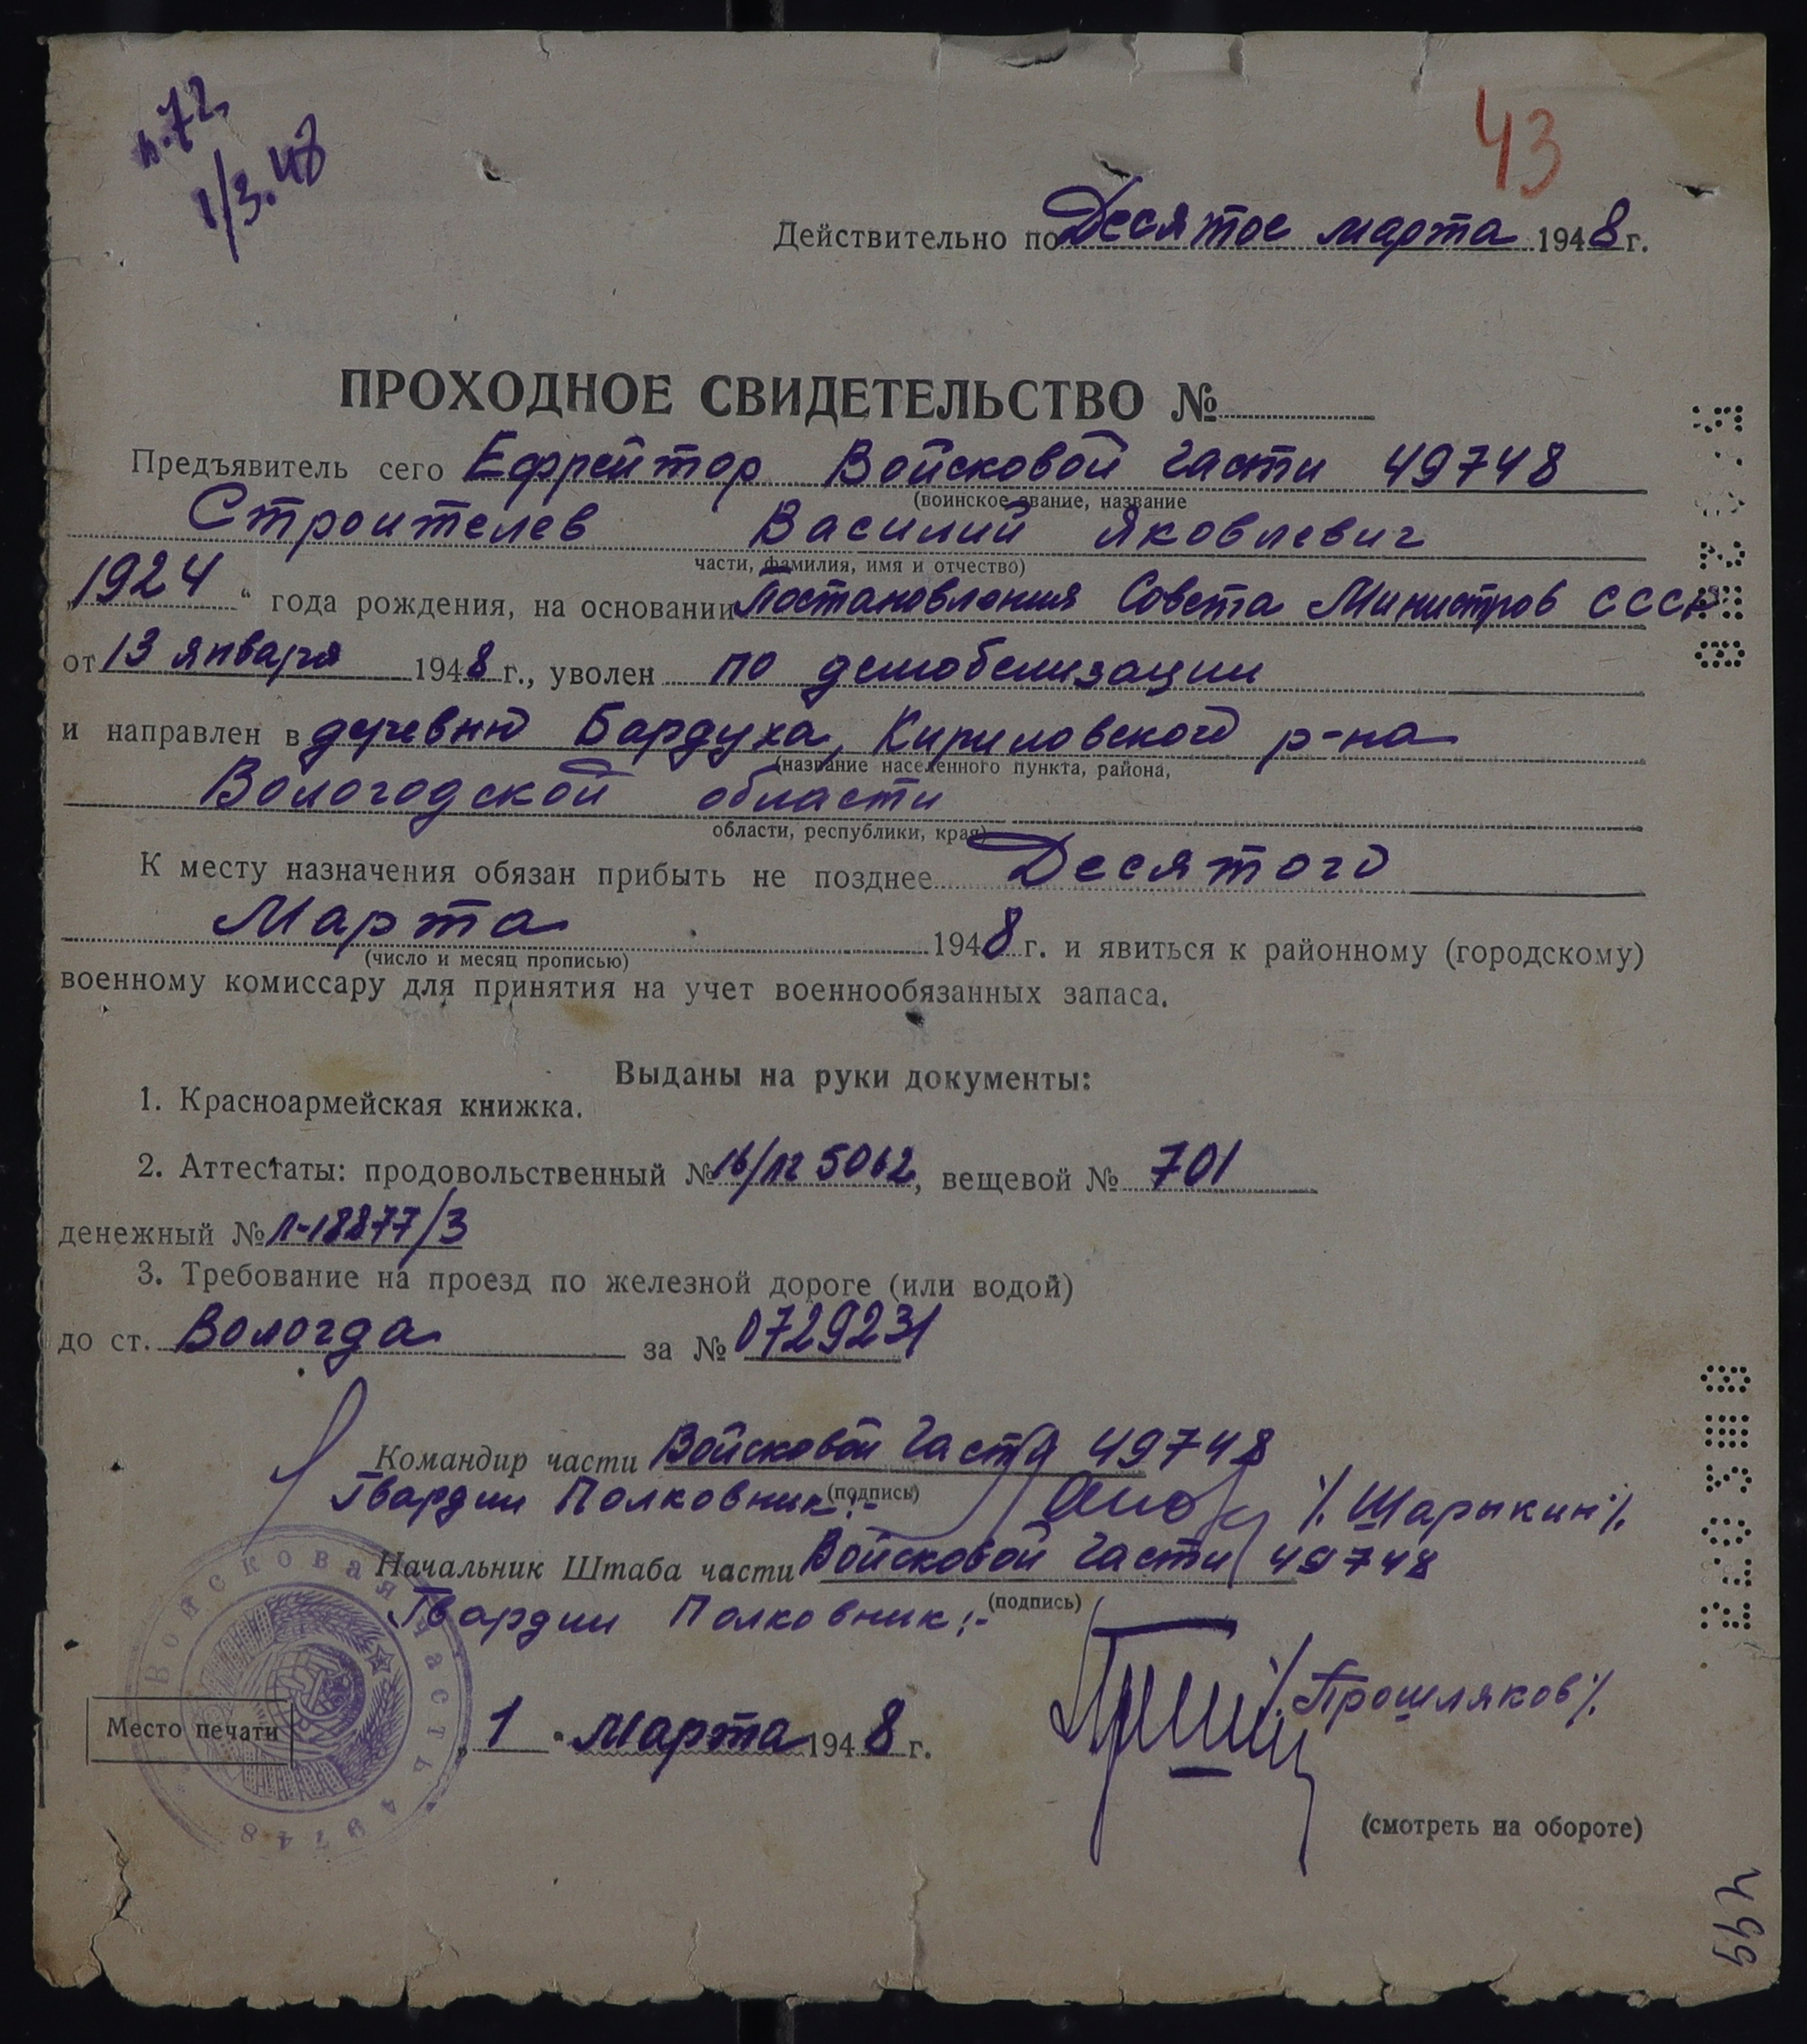 п.72.
1/3.48
43
Действительно по Десятое марта 1948 г.
ПРОХОДНОЕ СВИДЕТЕЛЬСТВО №
Предъявитель сего Ефрейтор Войсковой части 49748
(воинское звание, название
Строителев Василий Яковлевич
части, фамилия, имя и отчество)
„1924“ года рождения, на основании Постановления Совета Министров СССР
от 13 января 1948 г., уволен по демобелизации
и направлен в деревню Бардуха, Кириловского р-на
(название населенного пункта, района,
Вологодской области
области, республики, края)
К месту назначения обязан прибыть не позднее Десятого
Марта 1948 г. и явиться к районному (городскому)
(число и месяц прописью)
военному комиссару для принятия на учет военнообязанных запаса.
Выданы на руки документы:
1. Красноармейская книжка.
2. Аттестаты: продовольственный № 16/пг 5062, вещевой № 701
денежный № Л-18877/3
3. Требование на проезд по железной дороге (или водой)
до ст. Вологда за № 0729231
Командир части Войсковой части 49748
(подпись)
Гвардии Полковник:- /. Шарыкин /.
Начальник Штаба части Войсковой части 49748
(подпись)
Гвардии Полковник:-
/. Прошляков /.
Войсковая часть 49748
Место печати
„1“ Марта 1948 г.
(смотреть на обороте)